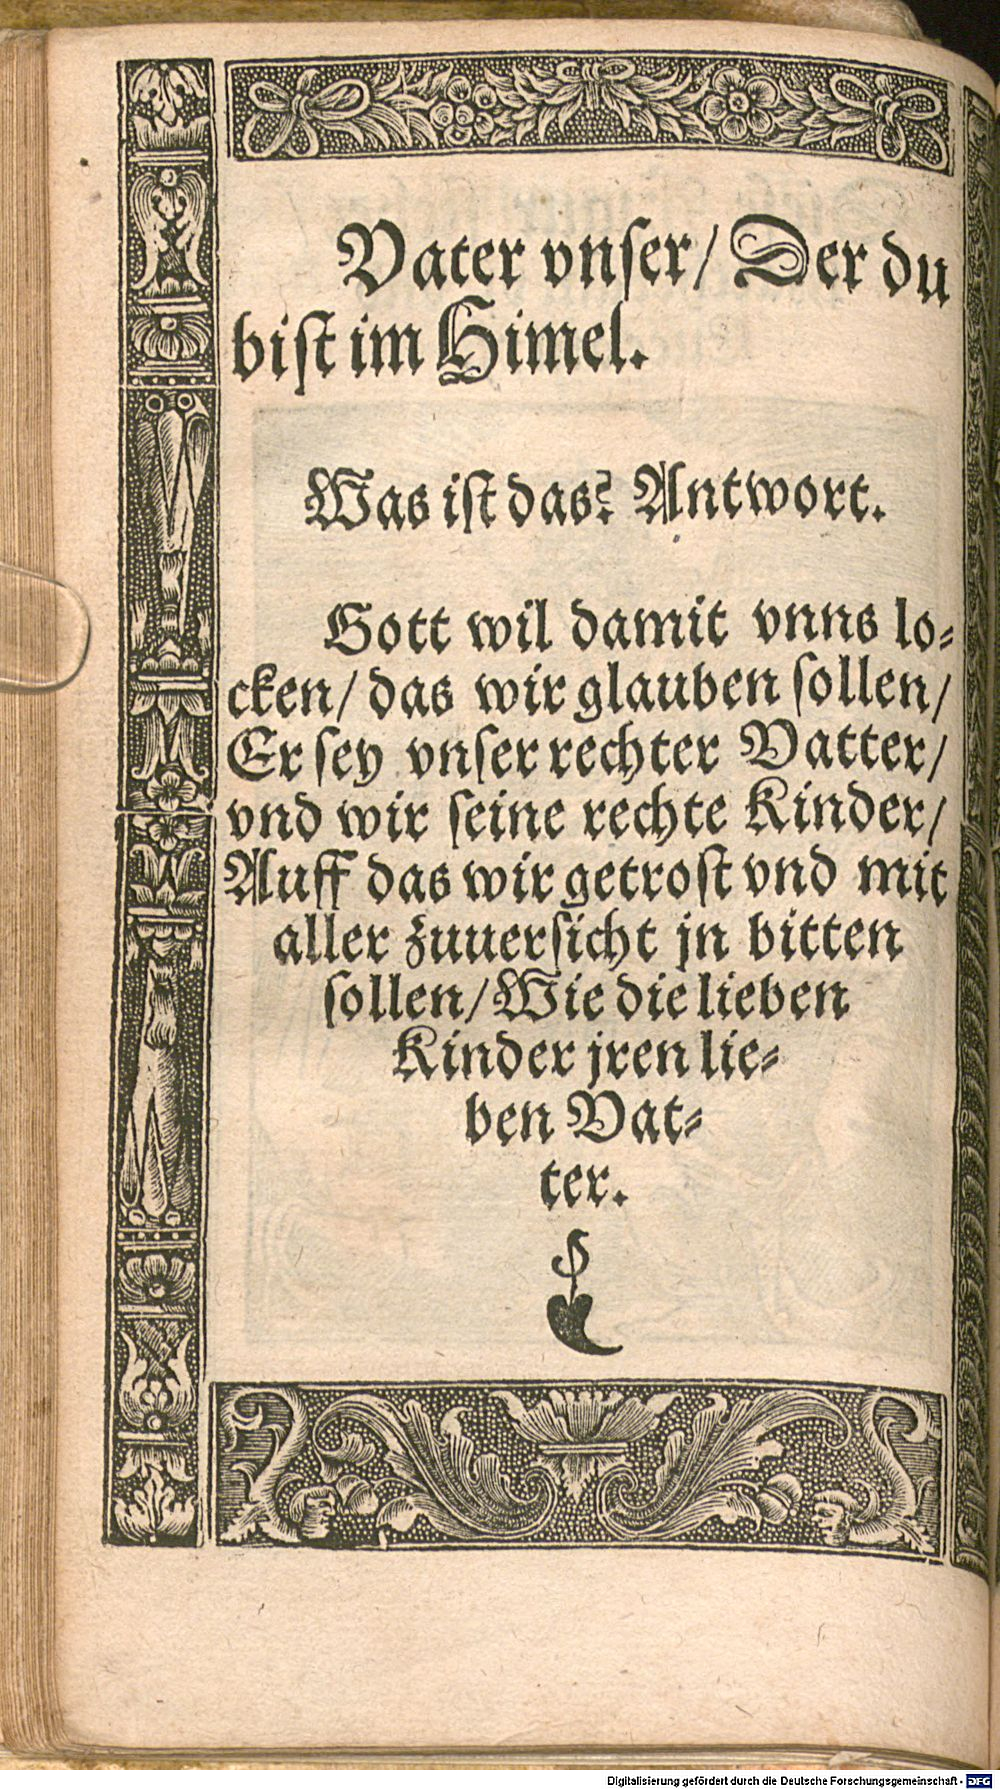 Vater vnſer/ Der du
biſt im Himel.
Was iſt das? Antwort.
Gott wil damit vnns lo⸗
cken/ das wir glauben ſollen/
Er ſey vnſer rechter Vatter/
vnd wir ſeine rechte Kinder/
Auff das wir getroſt vnd mit
aller zuuerſicht jn bitten
ſollen/ Wie die lieben
Kinder jren lie⸗
ben Vat⸗
ter.
Digitalisierung gefördert durch die Deutsche Forschungsgemeinschaft - DFG